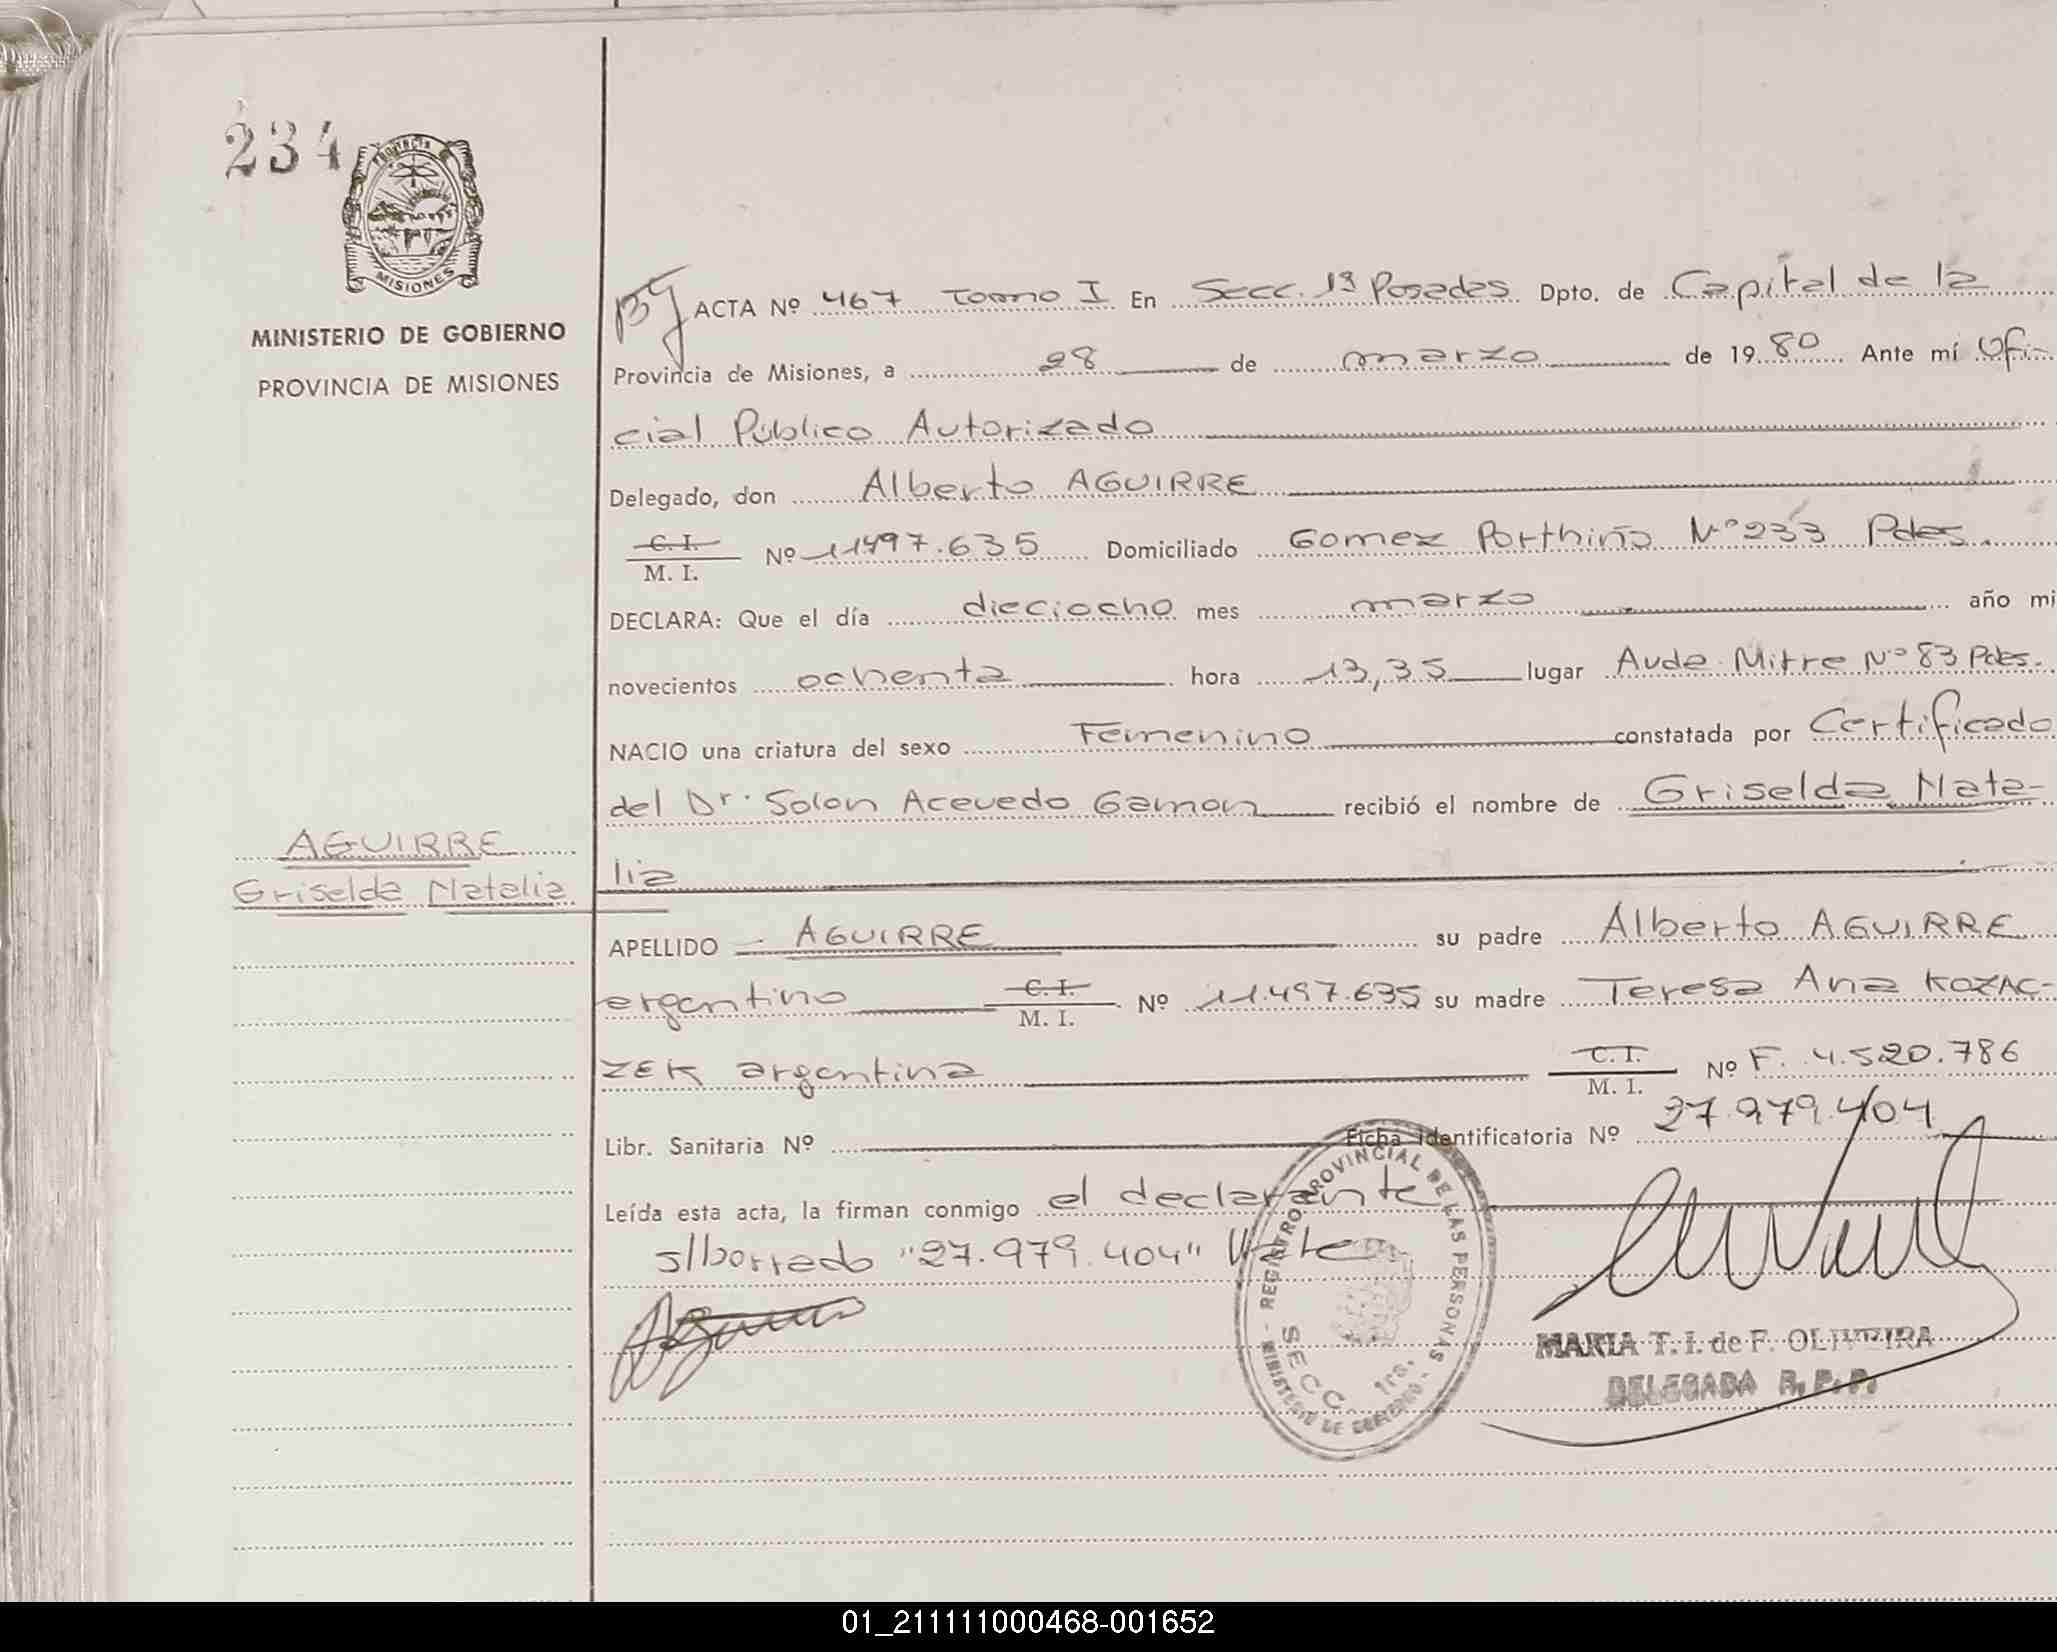 234
PROVINCIA
MISIONES
MINISTERIO DE GOBIERNO
PROVINCIA DE MISIONES
ACTA Nº 467 Tomo I En Secc. 1ª Posadas Dpto. de Capital de la
Provincia de Misiones, a 28 de marzo de 1980 Ante mí Ofi-
cial Público Autorizado
Delegado, don Alberto AGUIRRE
C. I.
M. I. Nº 11497.635 Domiciliado Gomez Porthiña Nº 233 Pdas.
DECLARA: Que el día dieciocho mes marzo año mi
novecientos ochenta hora 13,35 lugar Avda. Mitre Nº 83 Pdas.
NACIO una criatura del sexo Femenino constatada por Certificado
del Dr. Solon Acevedo Gamon recibió el nombre de Griselda Nata-
lia
AGUIRRE
Griselda Natalia
APELLIDO AGUIRRE su padre Alberto AGUIRRE
argentino C. I.
M. I. Nº 11.497.635 su madre Teresa Ana KOZAC-
ZEK argentina C. I.
M. I. Nº F. 4.520.786
Libr. Sanitaria Nº Ficha Identificatoria Nº 27.979.404
Leída esta acta, la firman conmigo el declarante
s/borrado "27.979.404" Vale
REGISTRO PROVINCIAL DE LAS PERSONAS
MINISTERIO DE GOBIERNO
SECC. 1ra.
MARIA T. I. de F. OLIVEIRA
DELEGADA R. P. P.
01_211111000468-001652